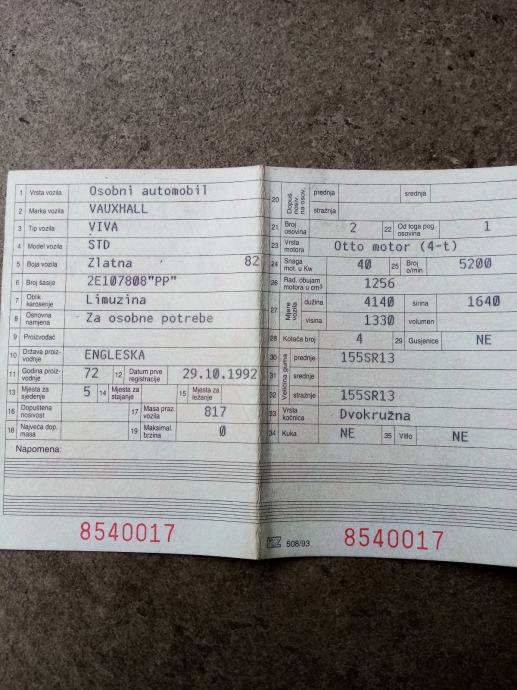 1 Vrsta vozila Osobni automobil
2 Marka vozila VAUXHALL
3 Tip vozila VIVA
4 Model vozila STD
5 Boja vozila Zlatna 82
6 Broj šasije 2E107808"PP"
7 Oblik karoserije Limuzina
8 Osnovna namjena Za osobne potrebe
9 Proizvođač
10 Država proizvodnje ENGLESKA
11 Godina proizvodnje 72 12 Datum prve registracije 29.10.1992
13 Mjesta za sjedenje 5 14 Mjesta za stajanje 15 Mjesta za ležanje
16 Dopuštena nosivost 17 Masa praz. vozila 817
18 Najveća dop. masa 19 Maksimal. brzina 0
Napomena:
8540017
20 Dopuš. nosiv. na osov. prednja srednja
stražnja
21 Broj osovina 2 22 Od toga pog. osovina 1
23 Vrsta motora Otto motor (4-t)
24 Snaga mot. u Kw 40 25 Broj o/min 5200
26 Rad. obujam motora u cm³ 1256
27 Mjere vozila dužina 4140 širina 1640
visina 1330 volumen
28 Kotača broj 4 29 Gusjenice NE
30 Veličina guma prednje 155SR13
31 srednje
32 stražnje 155SR13
33 Vrsta kočnica Dvokružna
34 Kuka NE 35 Vitlo NE
508/93 8540017